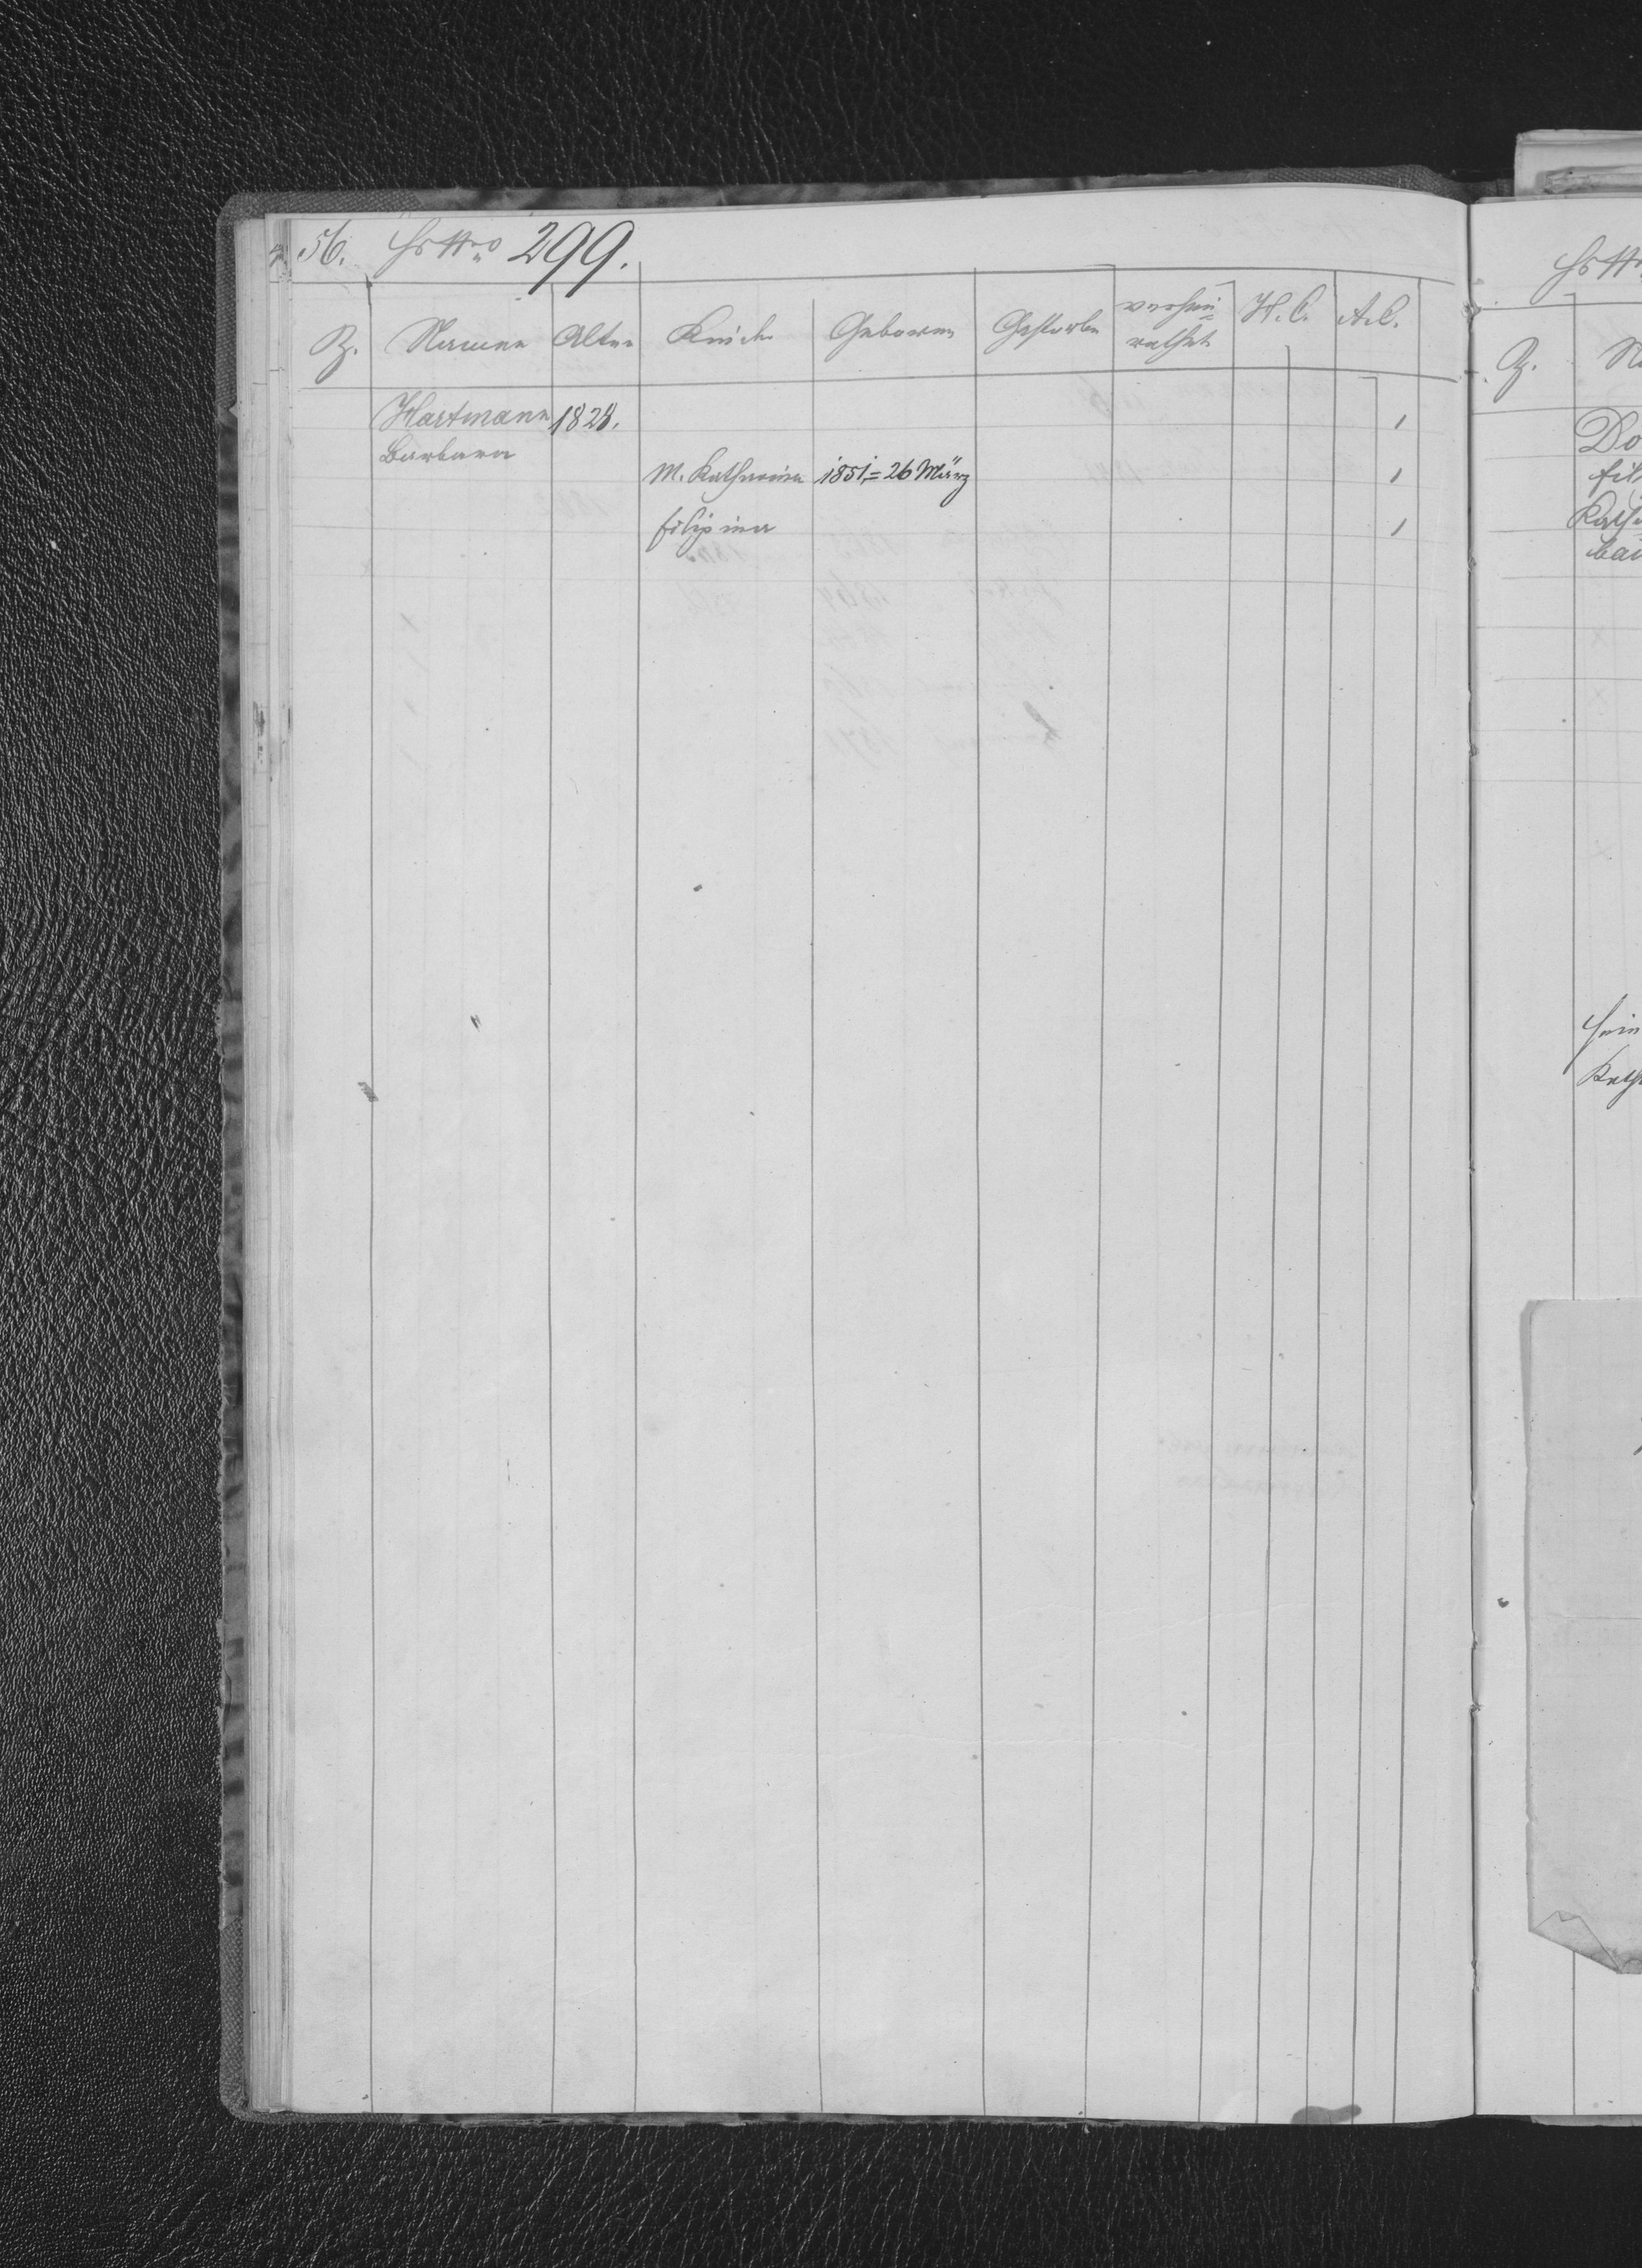 56. Hs Nro 299.
Z. Namen Alter Kinder Geboren Gestorben verhei=
rathet H.C. A.C.
Hartmann 1828.
Barbara
M. Katharina 1851 = 26 März
Filipina
Hs N
Z. N
Do
Fil
Kath